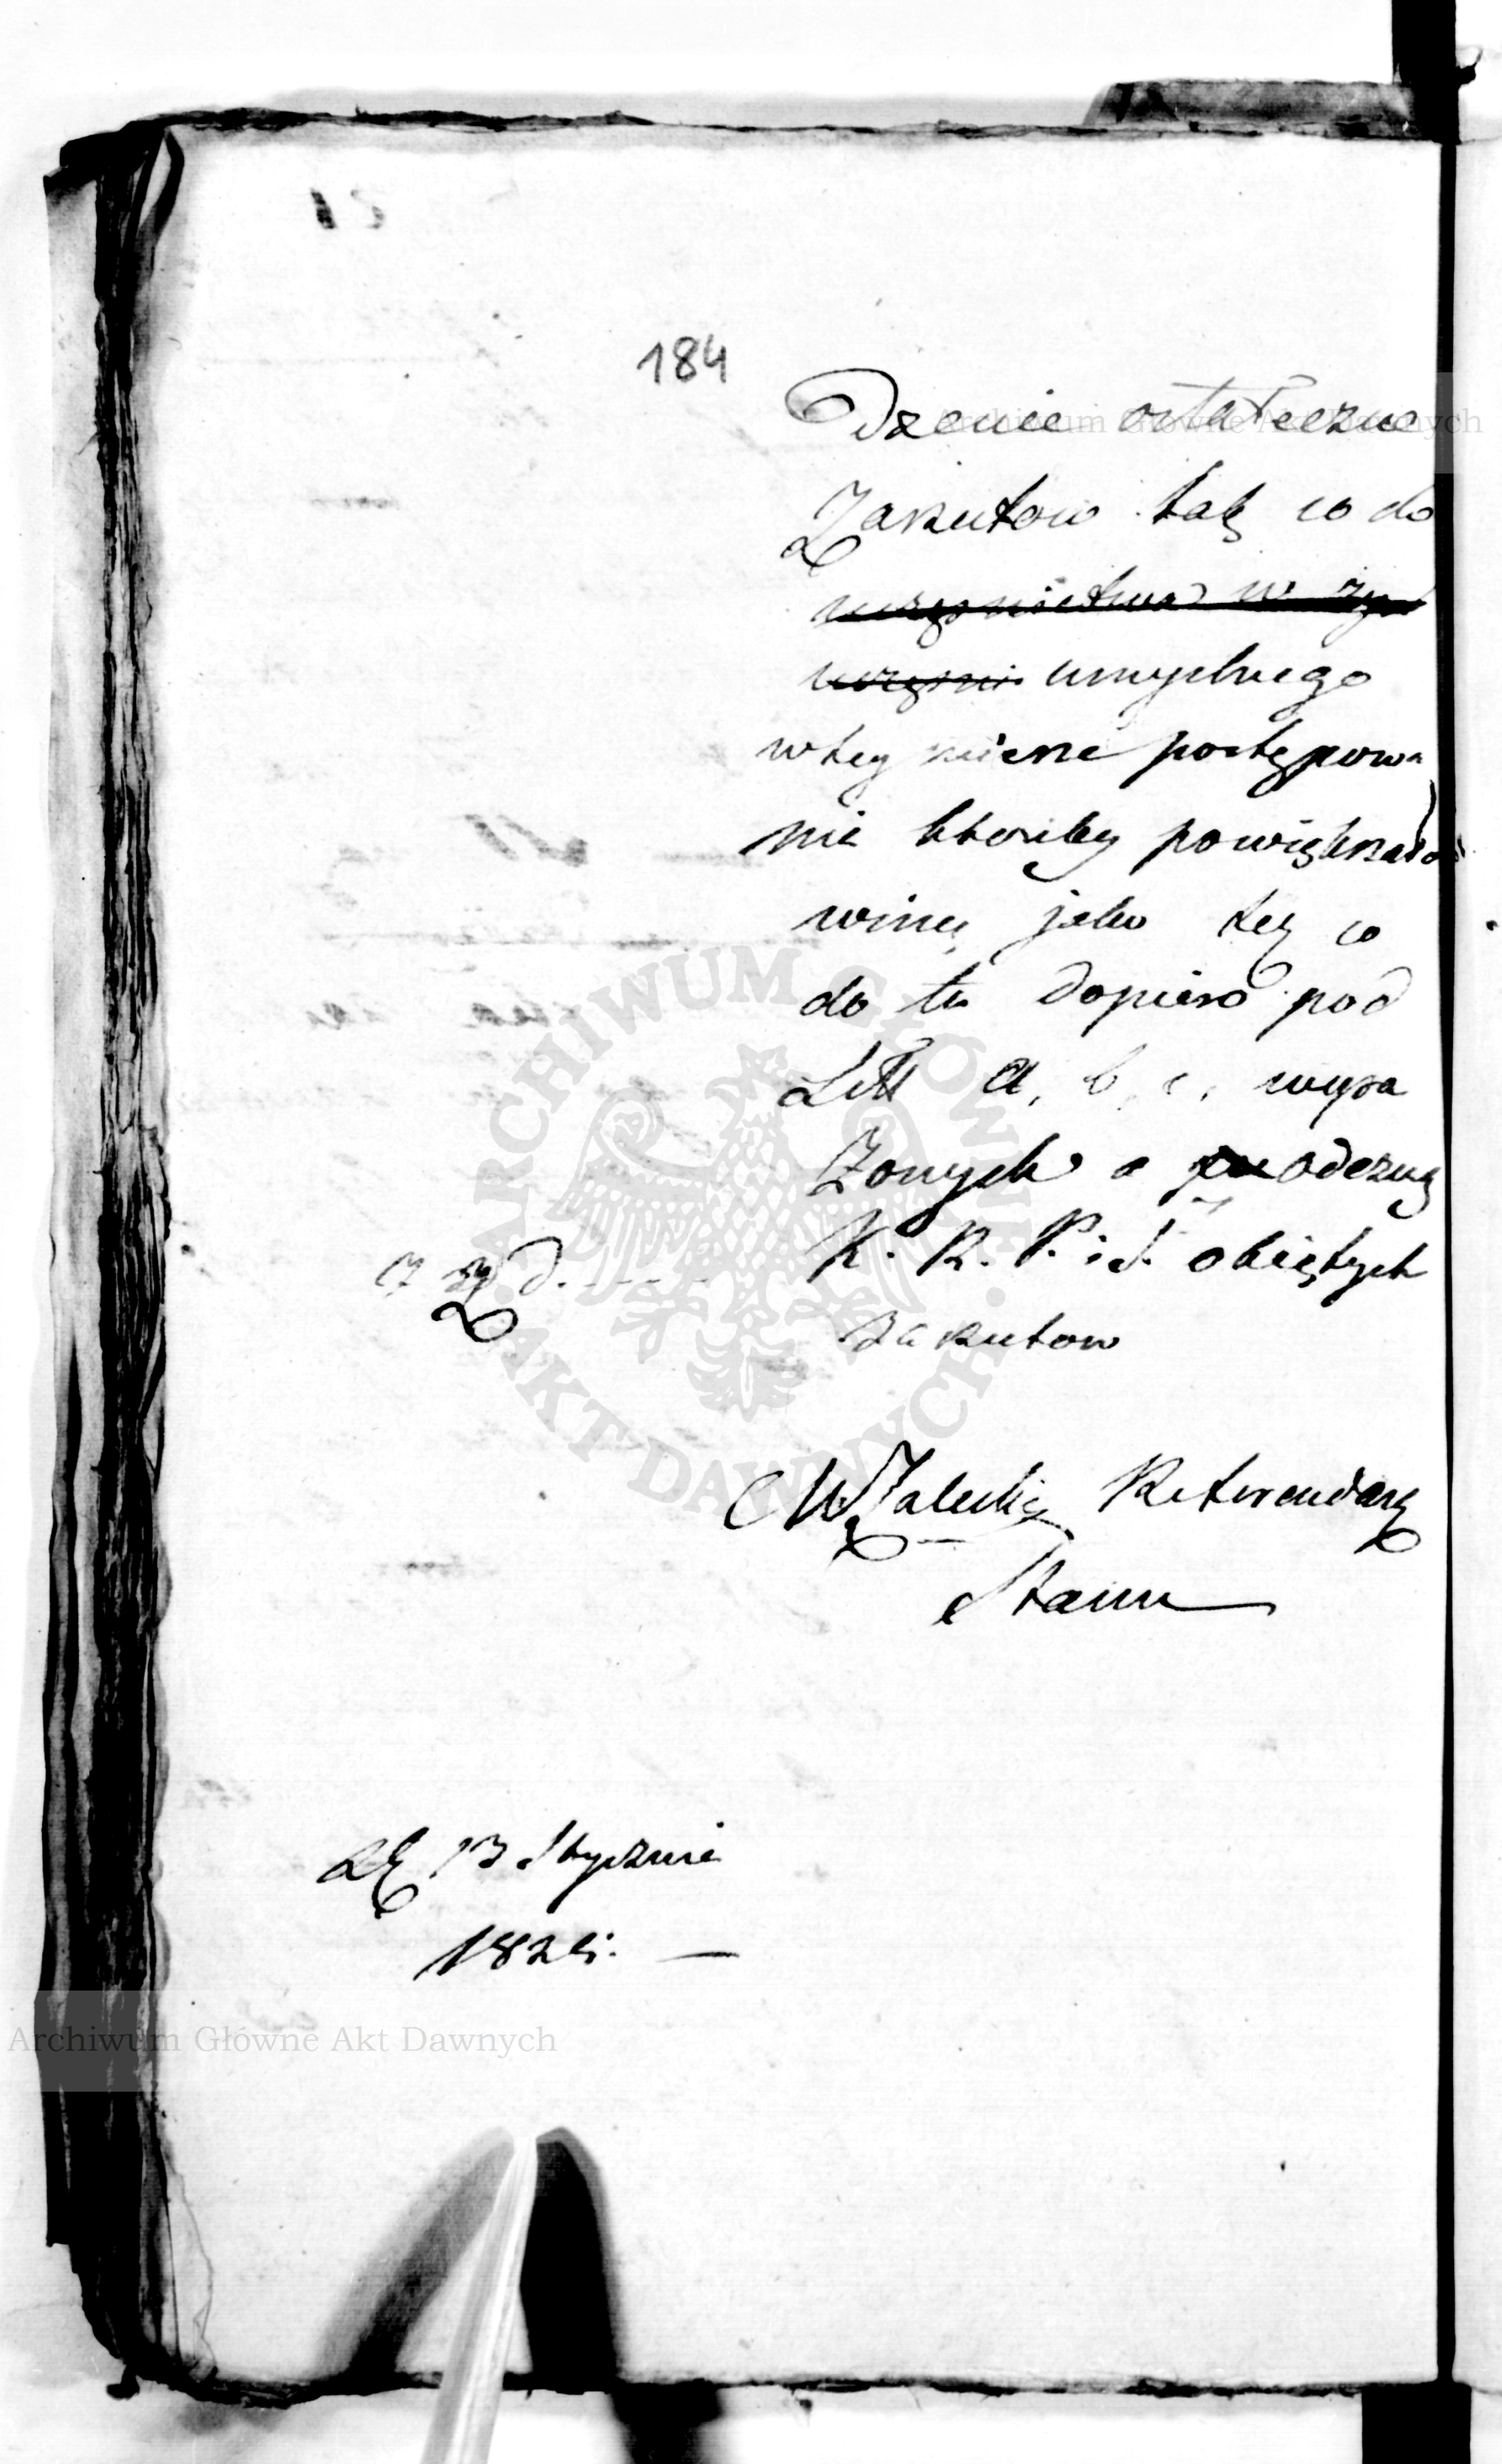 184
dzenie ostateczne
Zarzutow tak co do
umyslnego
w tey mierze postępowa
nia ktoreby powiększało
winę jako też co
do tu dopiero pod
Litt a, b, c, wyra
żonych a odezwą
K. R. P. i S. obiętych
zarzutow
Zaleski Referendarz
Stanu
13 Stycznia
ARCHIWUM GŁÓWNE AKT DAWNYCH
Archiwum Główne Akt Dawnych
Archiwum Główne Akt Dawnych